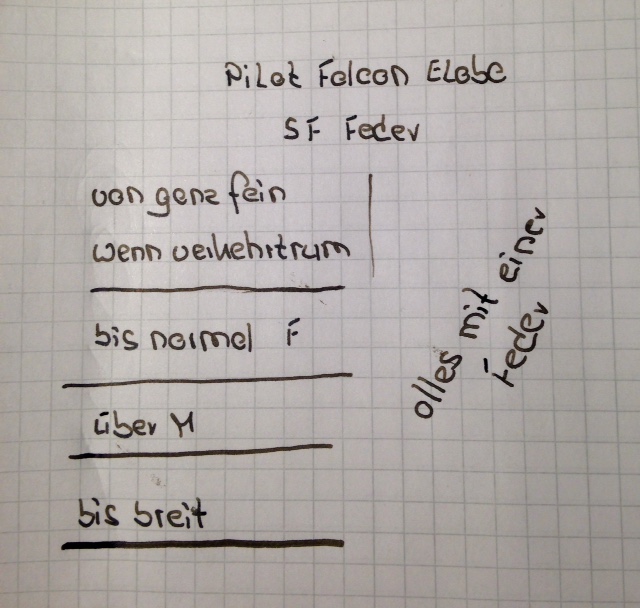 Pilot Falcon Elabo
SF Feder
von ganz fein
wenn verkehrtrum
bis normal F
über M
bis breit
alles mit einer
Feder